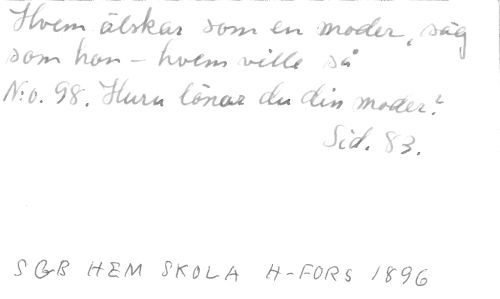 Hvem älskar som en moder, säg
som hon - hvem ville så
N:o. 98. Huru lönar du din moder?
Sid. 83.
SGB HEM SKOLA H-FORS 1896